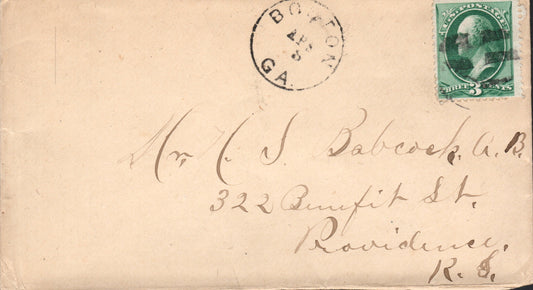 BOSTON
APR
8
GA.
U.S. POSTAGE
THREE 3 CENTS
Mr. H. S. Babcock. A. B.
322 Benifit St.
Providence.
R. I.